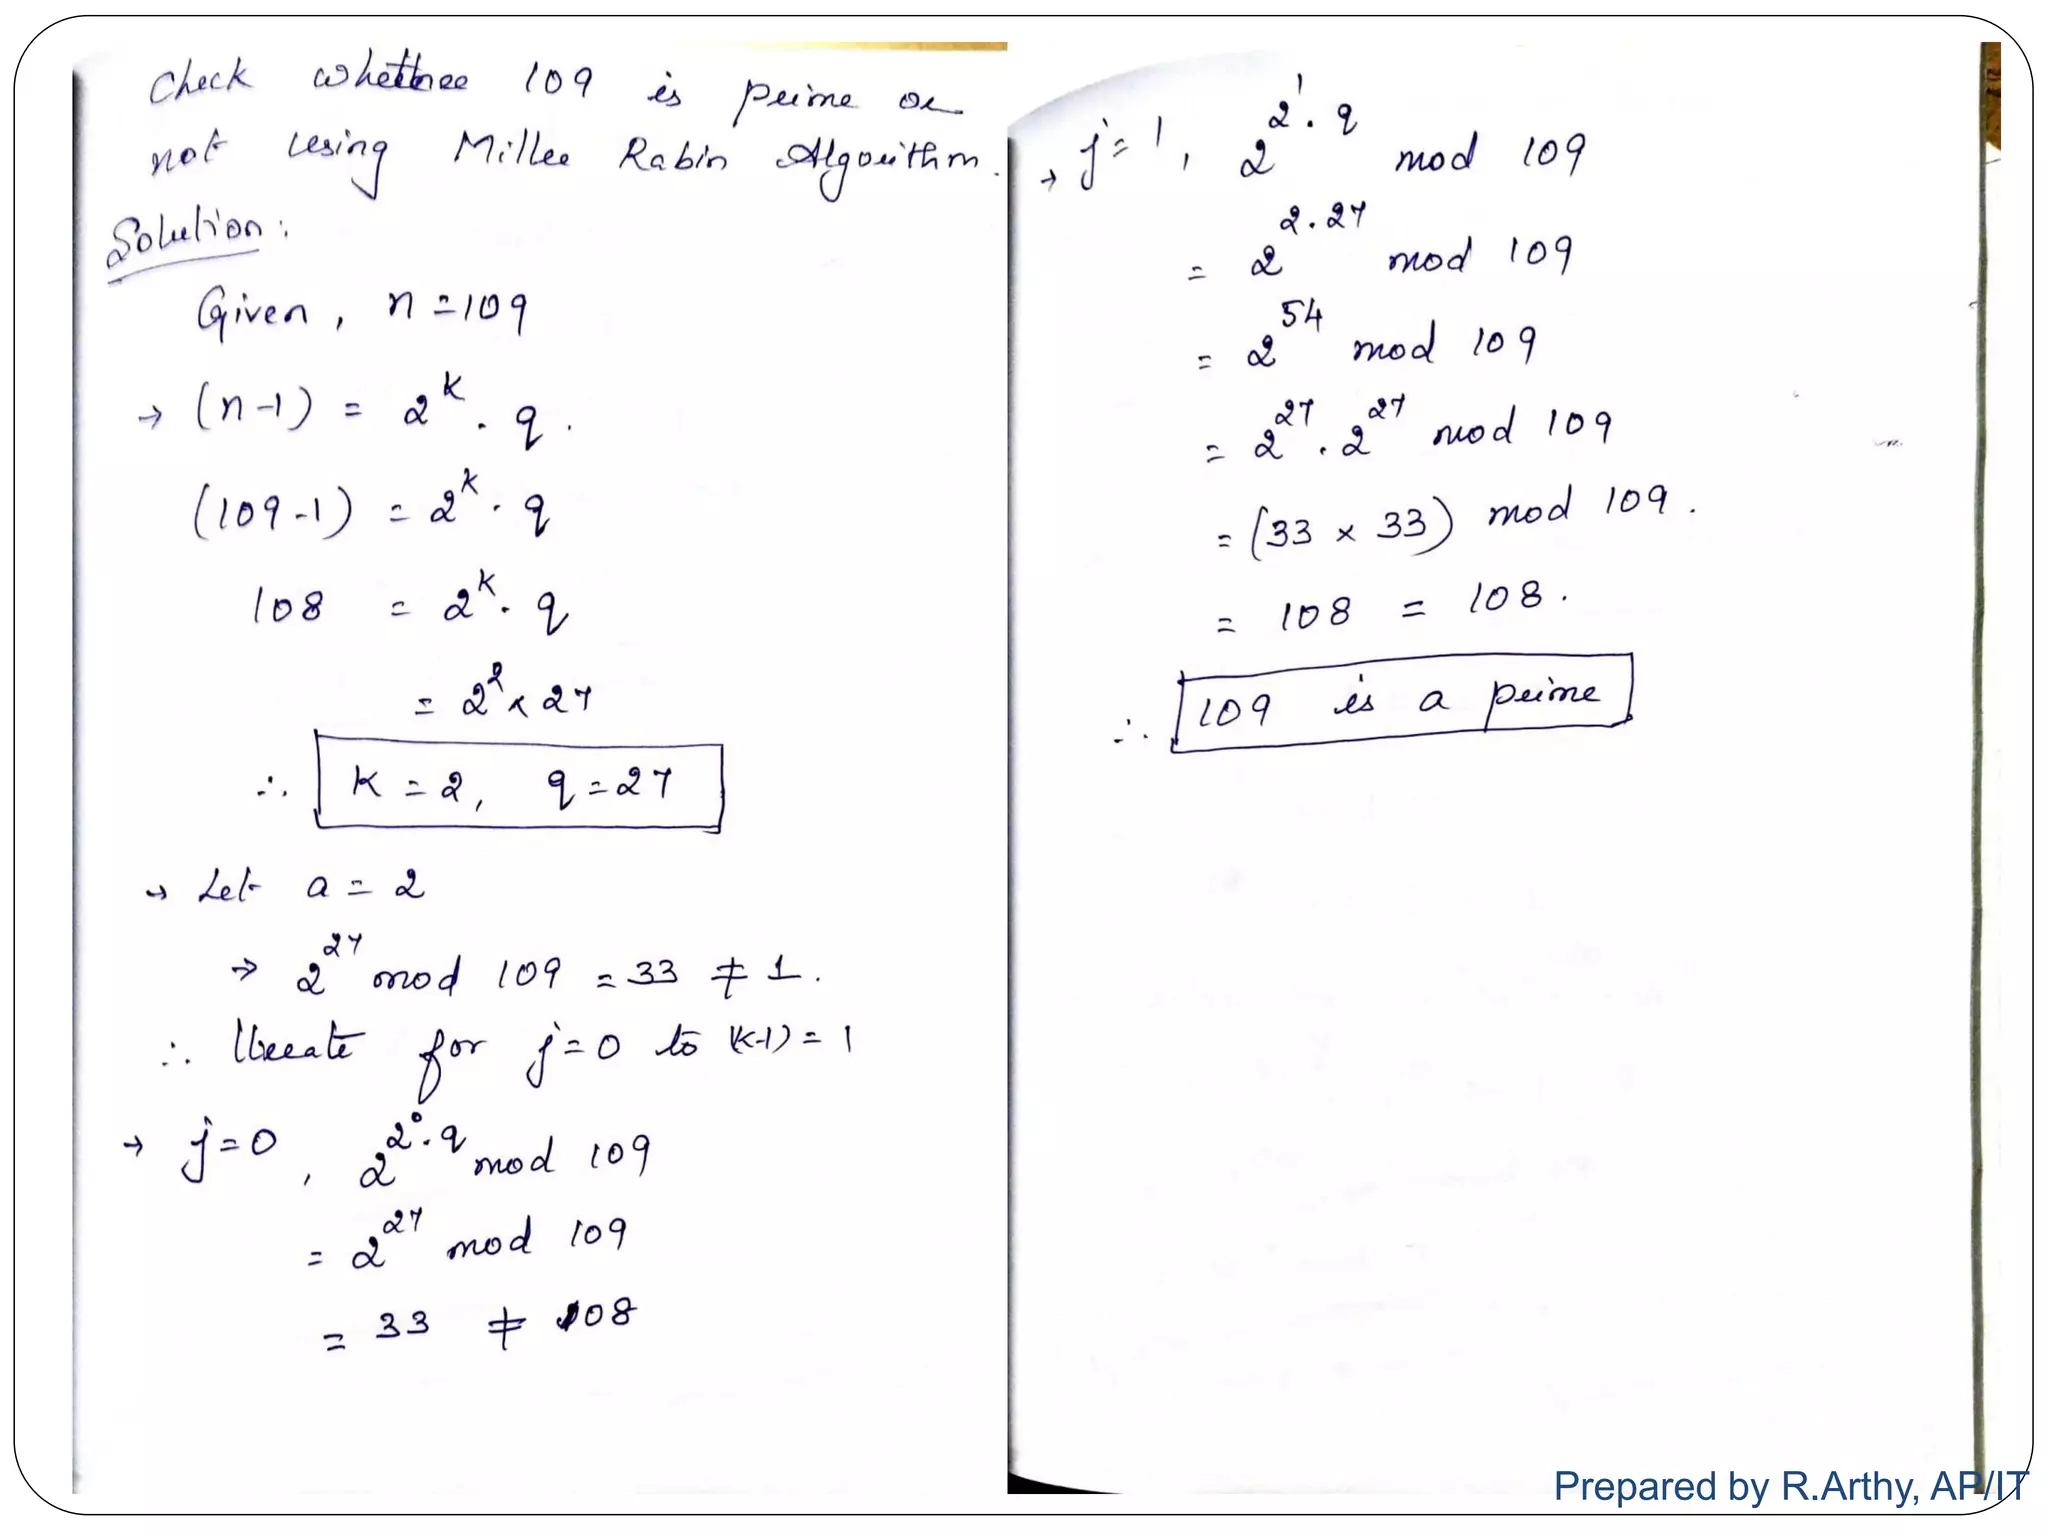 Check whether 109 is prime or
not using Miller Rabin Algorithm.
Solution:
Given, n = 109
→ (n-1) = 2^k . q.
(109-1) = 2^k . q
108 = 2^k . q
= 2^2 × 27
∴ K = 2, q = 27
→ Let a = 2
⇒ 2^27 mod 109 = 33 ≠ 1.
∴ Iterate for j = 0 to (k-1) = 1
→ j = 0, 2^(2^0 . q) mod 109
= 2^27 mod 109
= 33 ≠ 108
→ j = 1, 2^(2^1 . q) mod 109
= 2^(2.27) mod 109
= 2^54 mod 109
= 2^27 . 2^27 mod 109
= (33 × 33) mod 109.
= 108 = 108.
∴ 109 is a prime
Prepared by R.Arthy, AP/IT